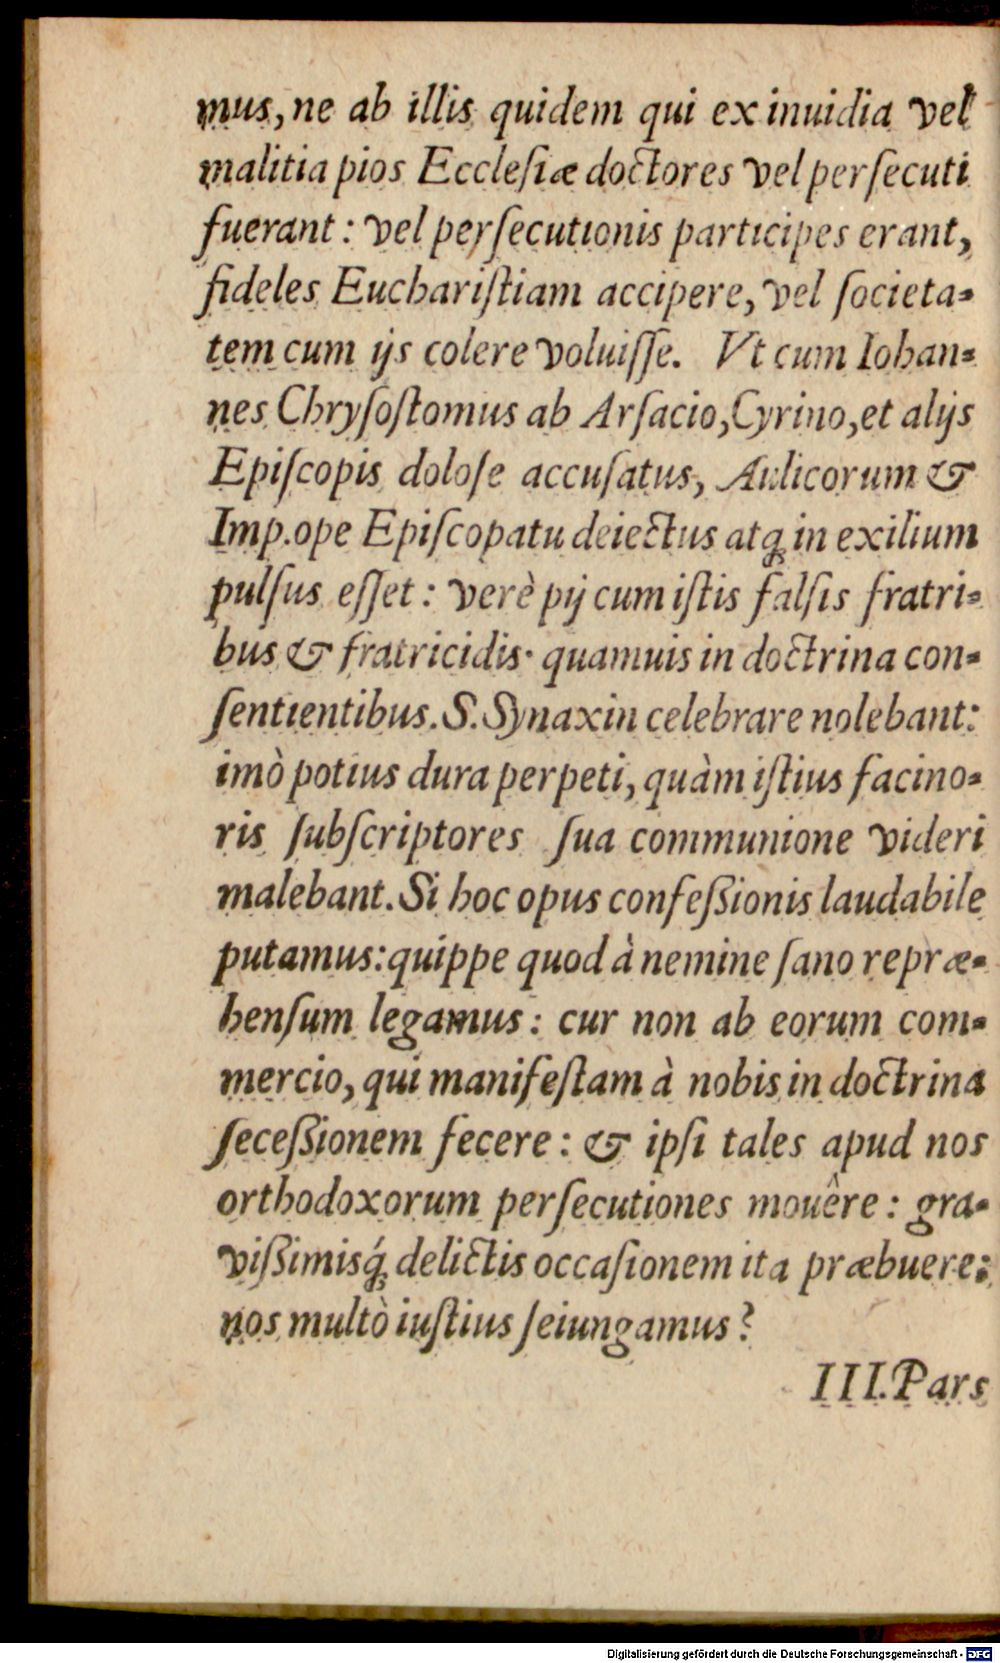 mus, ne ab illis quidem qui ex inuidia vel
malitia pios Ecclesiæ doctores vel perſecuti
fuerant: vel perſecutionis participes erant,
fideles Euchariſtiam accipere, vel ſocieta-
tem cum ijs colere voluiſſe. Vt cum Iohan-
nes Chryſoſtomus ab Arſacio, Cyrino, et alijs
Epiſcopis doloſe accuſatus, Aulicorum &
Imp. ope Epiſcopatu deiectus atq; in exilium
pulſus eſſet: verè pij cum iſtis falſis fratri-
bus & fratricidis· quamuis in doctrina con-
ſentientibus. S. Synaxin celebrare nolebant:
imò potius dura perpeti, quàm iſtius facino-
ris ſubſcriptores ſua communione videri
malebant. Si hoc opus confeßionis laudabile
putamus: quippe quod à nemine ſano repræ-
henſum legamus: cur non ab eorum com-
mercio, qui manifeſtam à nobis in doctrina
ſeceßionem fecere: & ipſi tales apud nos
orthodoxorum perſecutiones mouêre: gra-
vißimisq́; delictis occaſionem ita præbuere:
nos multò iuſtius ſeiungamus?
III. Pars
Digitalisierung gefördert durch die Deutsche Forschungsgemeinschaft - DFG